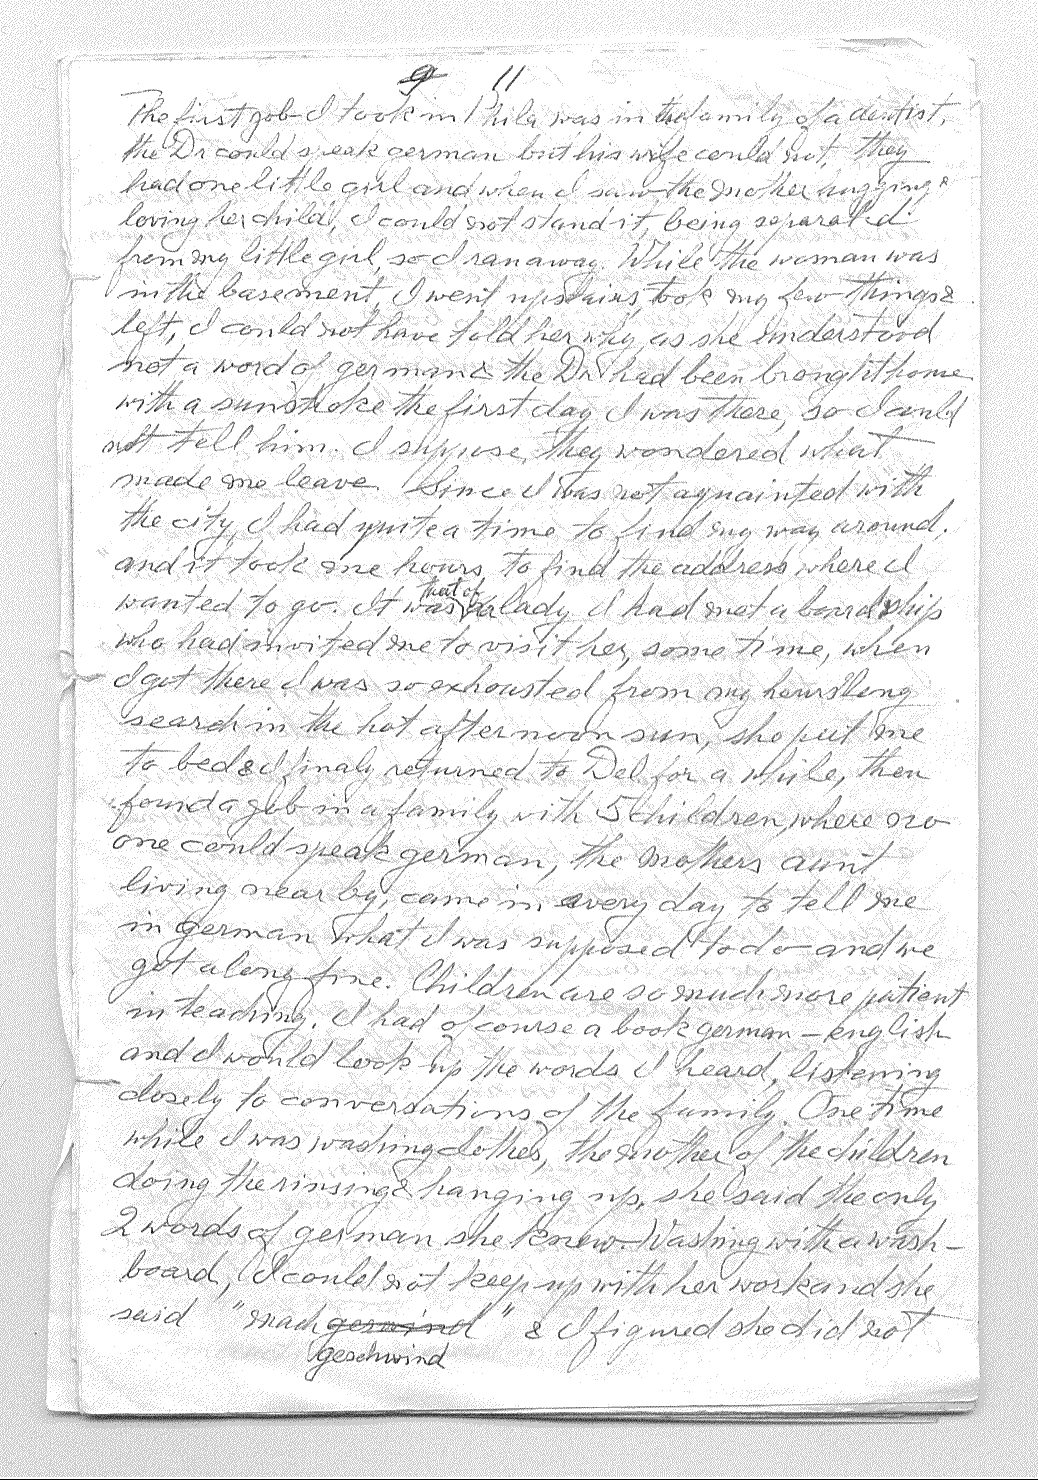 9 11
The first job I took in Phila was in the family of a dentist,
the Dr could speak german but his wife could not, they
had one little girl and when I saw the mother hugging &
loving her child, I could not stand it, being separated
from my little girl, so I ran away. While the woman was
in the basement, I went upstairs, took my few things &
left, I could not have told her why as she understood
not a word of german & the Dr had been brought home
with a sunstroke the first day I was there, so I could
not tell him. I suppose, they wondered what
made me leave. Since I was not aquainted with
the city, I had quite a time to find my way around.
and it took me hours to find the address where I
wanted to go. It was that of a lady I had met aboard ship
who had invited me to visit her, some time, when
I got there I was so exhausted from my hours long
search in the hot afternoon sun, she put me
to bed & I finaly returned to Del for a while, then
found a job in a family with 5 children, where no
one could speak german, the mothers aunt
living near by, came in every day to tell me
in german what I was supposed to do and we
got along fine. Children are so much more patient
in teaching. I had of course a book german – english
and I would look up the words I heard, listening
closely to conversations of the family. One time
while I was washing clothes, the mother of the children
doing the rinsing & hanging up, she said the only
2 words of german she knew. Washing with a wash-
board, I could not keep up with her work and she
said "mach gerwind" & I figured she did not
geschwind